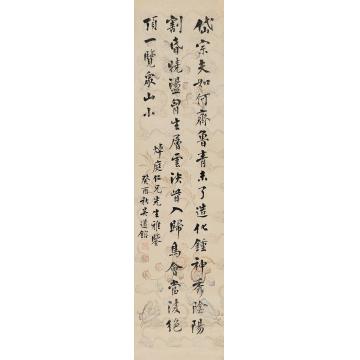 岱宗夫如何齊魯青未了造化鍾神秀陰陽
割昏曉盪胷生層雲決眥入歸鳥會當淩絕
頂一覽眾山小
焯庭仁兄先生雅鑒
癸酉秋吳道鎔